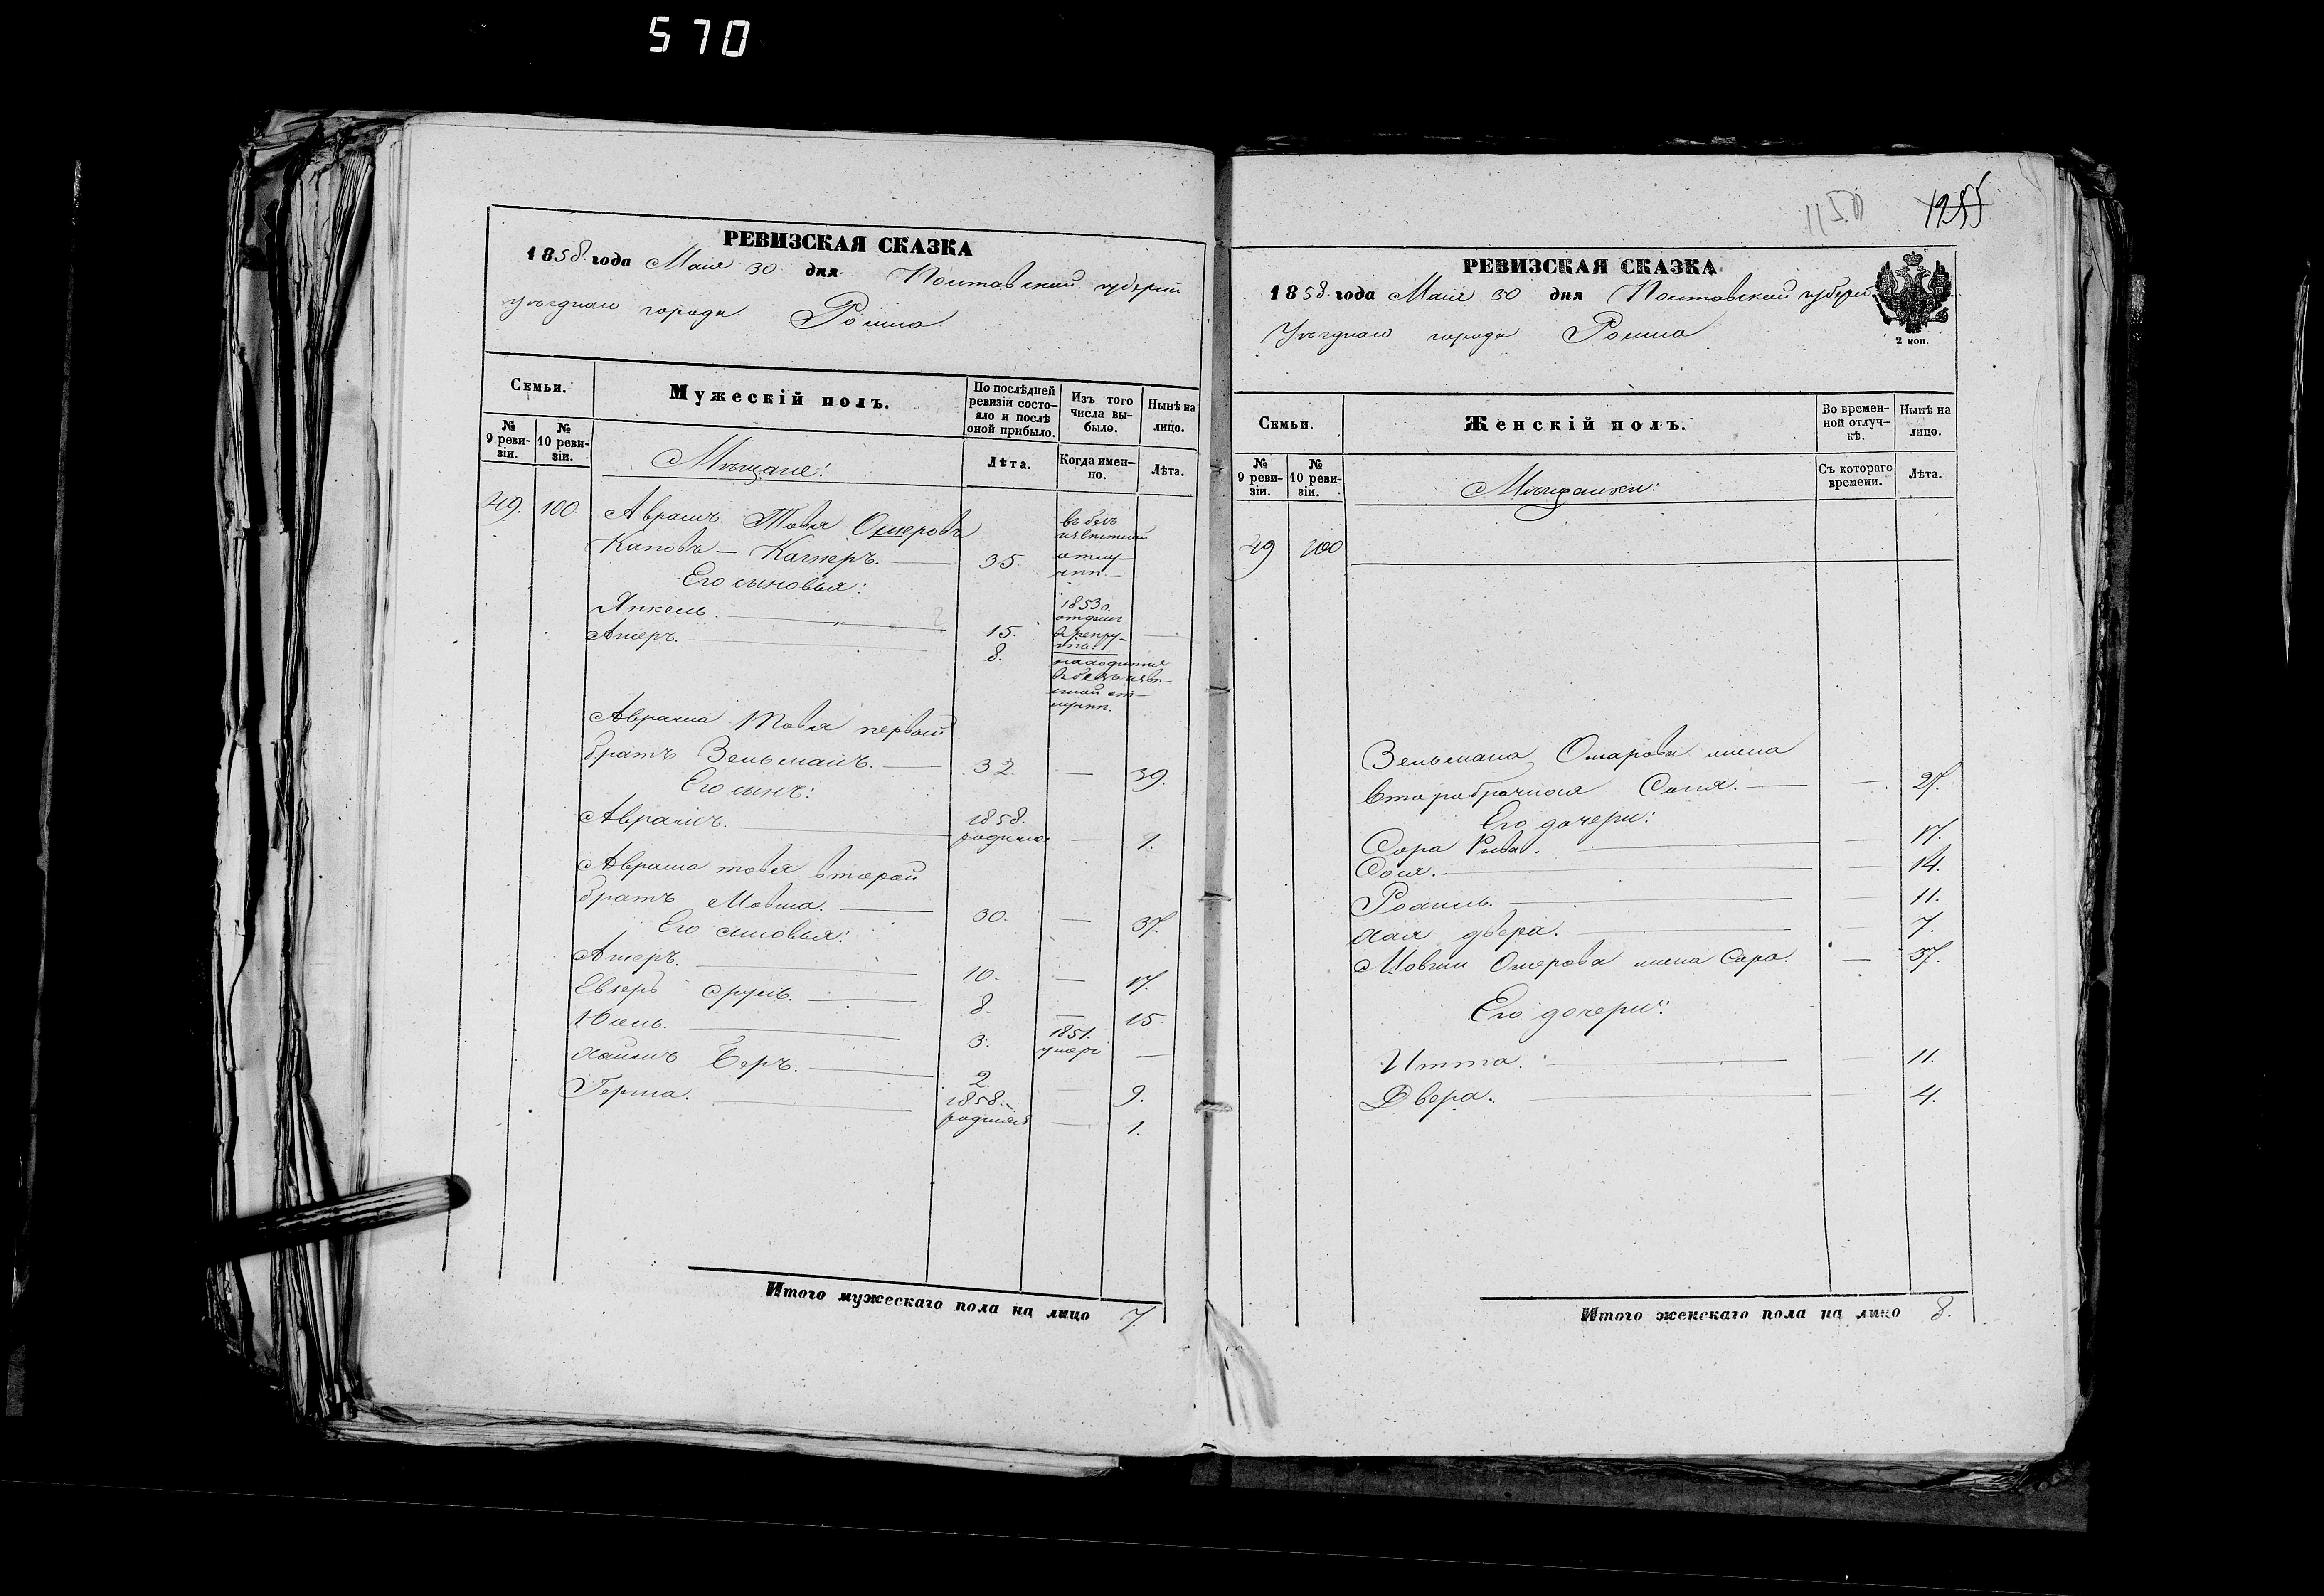 570
РЕВИЗСКАЯ СКАЗКА
1858 года Мая 30 дня Полтавской губернии
уѣзднаго города Ромна
Семьи.
Мужескій полъ.
По послѣдней ревизіи состояло и послѣ оной прибыло.
Изъ того числа выбыло.
Нынѣ на лицо.
№ 9 ревизіи.
№ 10 ревизіи.
Мѣщане:
Лѣта.
Когда именно.
Лѣта.
49. 100. Авраамъ Товія Ошеровъ
Каповъ — Кагнеръ. — 35. въ безъизвѣстной отлучкѣ. —
Его сыновья:
Янкель. — 15. 1853 г. отданъ въ рекруты. —
Ашеръ. — 8. находится въ безъизвѣстной отлучкѣ.
Авраама Товія первый
братъ Зельманъ. — 32. — 39.
Его сынъ:
Авраамъ. — 1858. родился — 1.
Авраама товія второй
братъ Мовша. — 30. — 37.
Его сыновья:
Ашеръ. — 10. — 17.
Евзеръ Сруль. — 8. — 15.
Юдель. — 3. 1851. умеръ —
Хаимъ Беръ. — 2. — 9.
Герша. — 1858. родился — 1.
Итого мужескаго пола на лицо 7.
1255
РЕВИЗСКАЯ СКАЗКА
1858 года Мая 30 дня Полтавской губерніи
Уѣзднаго города Ромна
2 коп.
Семьи.
Женскій полъ.
Во временной отлучкѣ.
Нынѣ на лицо.
№ 9 ревизіи.
№ 10 ревизіи.
Мѣщанки:
Съ котораго времени.
Лѣта.
49 100
Зельмана Ошерова жена
вторабрачная Соня. — — 27.
Его дочери:
Сора Рива. — — 17.
Соня. — — 14.
Рохиль. — — 11.
Хая двера. — — 7.
Мовши Ошерова жена Сора. — 37.
Его дочери:
Итта. — — 11.
Двера. — — 4.
Итого женскаго пола на лицо 8.